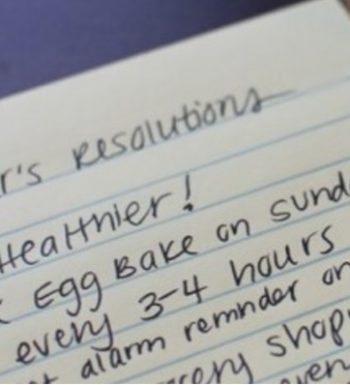 r's resolutions
Healthier!
Egg Bake on sund
every 3-4 hours
alarm remnder on
ery shop